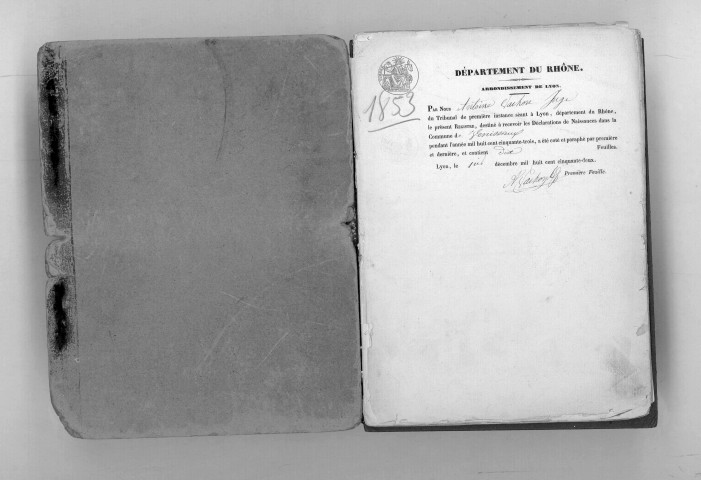 DÉPARTEMENT DU RHÔNE.
ARRONDISSEMENT DE LYON.
1853
PAR NOUS Antoine Juge
du Tribunal de première instance séant à Lyon, département du Rhône,
le présent REGISTRE, destiné à recevoir les Déclarations de Naissances dans la
Commune de Vénissieux
pendant l'année mil huit cent cinquante-trois, a été coté et paraphé par première
et dernière, et contient dix Feuilles.
Lyon, le décembre mil huit cent cinquante-deux.
Première Feuille.